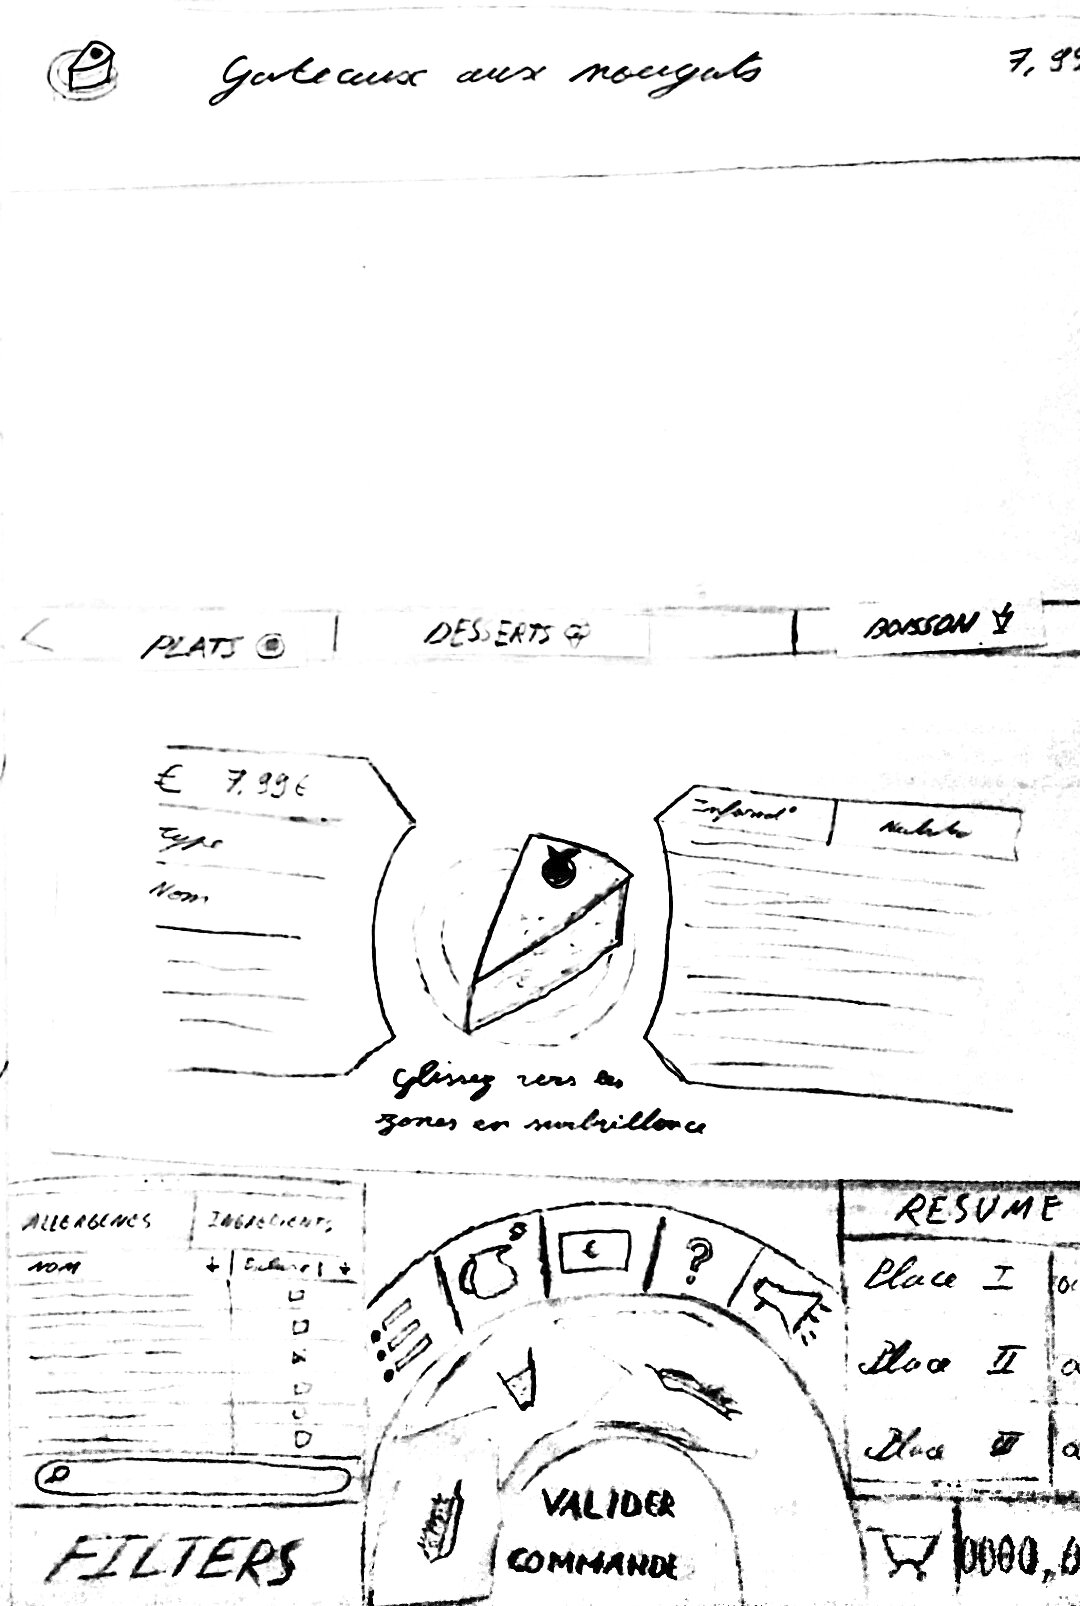 Gateaux aux nougats 7,99
PLATS
DESSERTS
BOISSON
€ 7.99€
Type
Nom
Glissez vers les
zones en surbrillance
ALLERGENES INGREDIENTS
NOM
€
?
VALIDER
COMMANDE
FILTERS
RESUME
Place I
Place II
Place III
0000,0